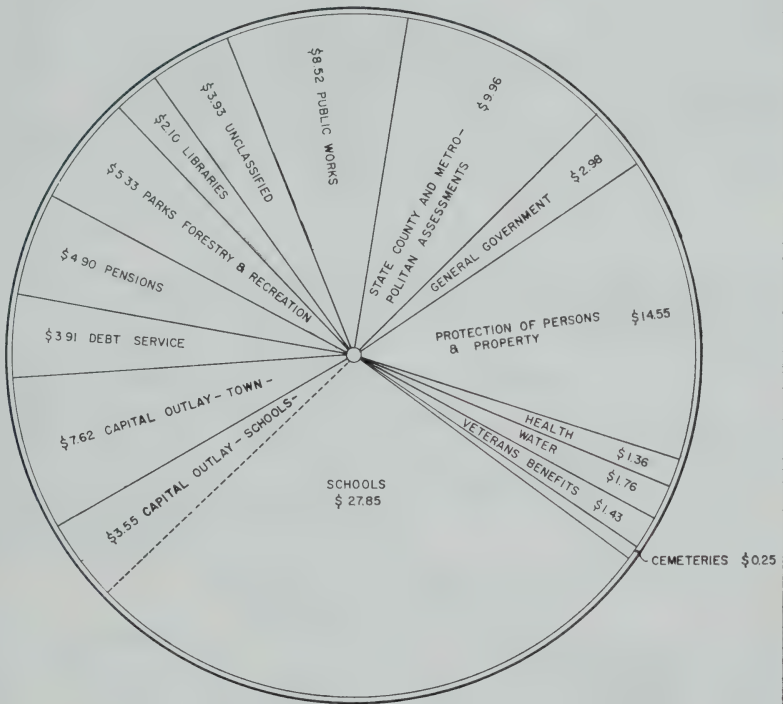 $8.52 PUBLIC WORKS
$9.96
STATE COUNTY AND METRO-
POLITAN ASSESSMENTS
$2.98
GENERAL GOVERNMENT
PROTECTION OF PERSONS
& PROPERTY
$14.55
HEALTH
$1.36
WATER
$1.76
VETERANS BENEFITS
$1.43
CEMETERIES $0.25
SCHOOLS
$27.85
$3.55 CAPITAL OUTLAY-SCHOOLS-
$7.62 CAPITAL OUTLAY-TOWN-
$3.91 DEBT SERVICE
$4.90 PENSIONS
$5.33 PARKS FORESTRY & RECREATION
$2.10 LIBRARIES
$3.93 UNCLASSIFIED